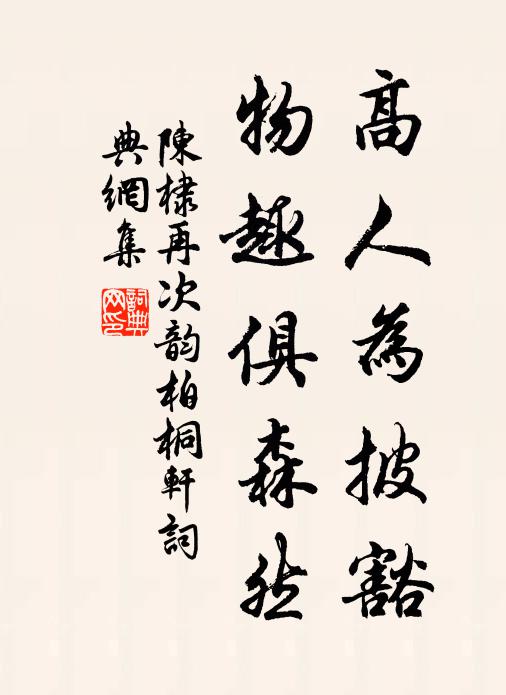 高人為披豁
物趣俱森然
陳棣再次韵柏桐軒詞
典網集
詞典網印